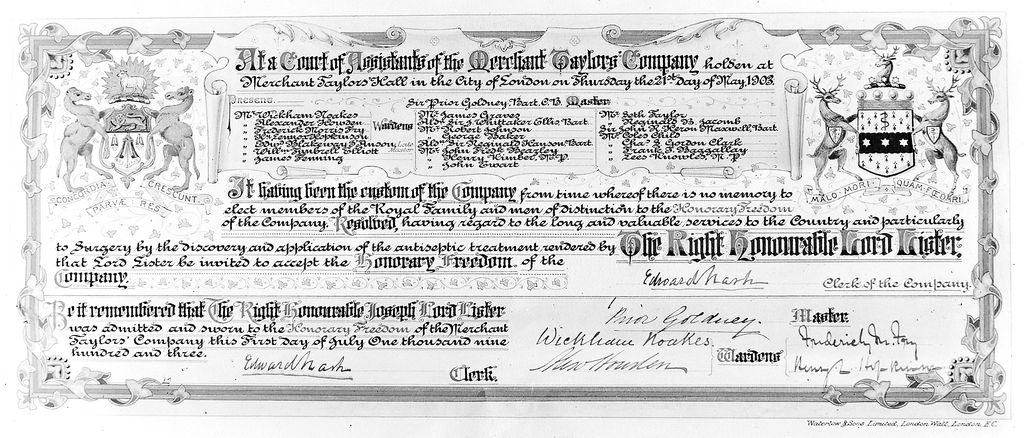 At a Court of Assistants of the Merchant Taylors' Company holden at
Merchant Taylors' Hall in the City of London on Thursday the 21st day of May, 1903.
Present
Sir Prior Goldney, Bart. C.B. Master
Mr. Wickham Noakes
Alexander Howden
Frederick Morris Fry
Hy. Lennard Hopkinson
Edwd. Blakeway I'Anson Late Master
Willm. Futrell Elliott
James Fenning
Wardens
Mr. James Graves
Aldn. Sir J. Whittaker Ellis, Bart.
Mr. Robert Johnson
George Baker
Aldn. Sir Reginald Hanson, Bart.
Mr. John M. Bearley
Henry Kimber, M.P.
John Ewart
Mr. Seth Taylor
Reginald B. Jacomb
Sir John R. Heron Maxwell, Bart.
Mr. Thos. Child
Chas. L. Gordon Clark
Frank T. Baggallay
Lees Knowles, M.P.
CONCORDIA PARVÆ RES CRESCUNT
MALO MORI QUAM FŒDARI
It having been the custom of the Company from time whereof there is no memory to
elect members of the Royal Family and men of distinction to the Honorary Freedom
of the Company, Resolved, having regard to the long and valuable services to the Country and particularly
to Surgery by the discovery and application of the antiseptic treatment rendered by The Right Honourable Lord Lister;
that Lord Lister be invited to accept the Honorary Freedom of the
Company.
Edward Nash Clerk of the Company.
Be it remembered that The Right Honourable Joseph Lord Lister
was admitted and sworn to the Honorary Freedom of the Merchant
Taylors' Company this First day of July One thousand nine
hundred and three.
Edward Nash
Clerk.
Prior Goldney Master
Wickham Noakes
Alex Howden
Wardens
Frederick M. Fry
Henry L. Hopkinson
Waterlow & Sons Limited, London Wall, London, E.C.